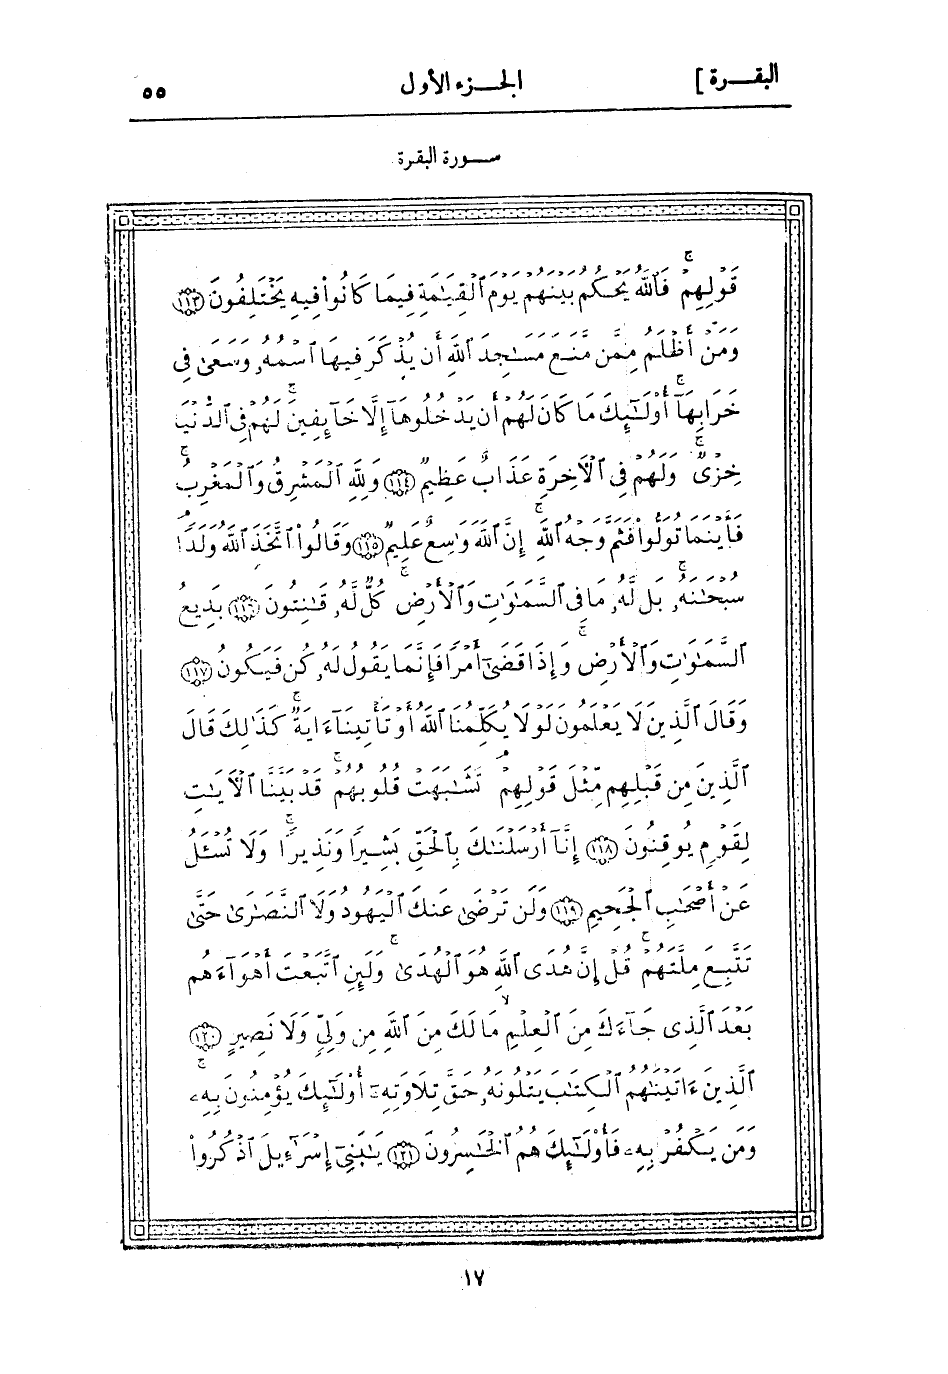 البقرة ] الجزء الأول ٥٥
سورة البقرة
قَوْلِهِمْ ۚ فَٱللَّهُ يَحْكُمُ بَيْنَهُمْ يَوْمَ ٱلْقِيَٰمَةِ فِيمَا كَانُوا۟ فِيهِ يَخْتَلِفُونَ ١١٣
وَمَنْ أَظْلَمُ مِمَّن مَّنَعَ مَسَٰجِدَ ٱللَّهِ أَن يُذْكَرَ فِيهَا ٱسْمُهُۥ وَسَعَىٰ فِى
خَرَابِهَآ ۚ أُو۟لَٰٓئِكَ مَا كَانَ لَهُمْ أَن يَدْخُلُوهَآ إِلَّا خَآئِفِينَ ۚ لَهُمْ فِى ٱلدُّنْيَا
خِزْىٌ وَلَهُمْ فِى ٱلْءَاخِرَةِ عَذَابٌ عَظِيمٌ ١١٤ وَلِلَّهِ ٱلْمَشْرِقُ وَٱلْمَغْرِبُ ۚ
فَأَيْنَمَا تُوَلُّوا۟ فَثَمَّ وَجْهُ ٱللَّهِ ۚ إِنَّ ٱللَّهَ وَٰسِعٌ عَلِيمٌ ١١٥ وَقَالُوا۟ ٱتَّخَذَ ٱللَّهُ وَلَدًا ۗ
سُبْحَٰنَهُۥ ۖ بَل لَّهُۥ مَا فِى ٱلسَّمَٰوَٰتِ وَٱلْأَرْضِ ۖ كُلٌّ لَّهُۥ قَٰنِتُونَ ١١٦ بَدِيعُ
ٱلسَّمَٰوَٰتِ وَٱلْأَرْضِ ۖ وَإِذَا قَضَىٰٓ أَمْرًا فَإِنَّمَا يَقُولُ لَهُۥ كُن فَيَكُونُ ١١٧
وَقَالَ ٱلَّذِينَ لَا يَعْلَمُونَ لَوْلَا يُكَلِّمُنَا ٱللَّهُ أَوْ تَأْتِينَآ ءَايَةٌ ۗ كَذَٰلِكَ قَالَ
ٱلَّذِينَ مِن قَبْلِهِم مِّثْلَ قَوْلِهِمْ ۘ تَشَٰبَهَتْ قُلُوبُهُمْ ۗ قَدْ بَيَّنَّا ٱلْءَايَٰتِ
لِقَوْمٍ يُوقِنُونَ ١١٨ إِنَّآ أَرْسَلْنَٰكَ بِٱلْحَقِّ بَشِيرًا وَنَذِيرًا ۖ وَلَا تُسْـَٔلُ
عَنْ أَصْحَٰبِ ٱلْجَحِيمِ ١١٩ وَلَن تَرْضَىٰ عَنكَ ٱلْيَهُودُ وَلَا ٱلنَّصَٰرَىٰ حَتَّىٰ
تَتَّبِعَ مِلَّتَهُمْ ۗ قُلْ إِنَّ هُدَى ٱللَّهِ هُوَ ٱلْهُدَىٰ ۗ وَلَئِنِ ٱتَّبَعْتَ أَهْوَآءَهُم
بَعْدَ ٱلَّذِى جَآءَكَ مِنَ ٱلْعِلْمِ ۙ مَا لَكَ مِنَ ٱللَّهِ مِن وَلِىٍّ وَلَا نَصِيرٍ ١٢٠
ٱلَّذِينَ ءَاتَيْنَٰهُمُ ٱلْكِتَٰبَ يَتْلُونَهُۥ حَقَّ تِلَاوَتِهِۦٓ أُو۟لَٰٓئِكَ يُؤْمِنُونَ بِهِۦ ۗ
وَمَن يَكْفُرْ بِهِۦ فَأُو۟لَٰٓئِكَ هُمُ ٱلْخَٰسِرُونَ ١٢١ يَٰبَنِىٓ إِسْرَٰٓءِيلَ ٱذْكُرُوا۟
١٧